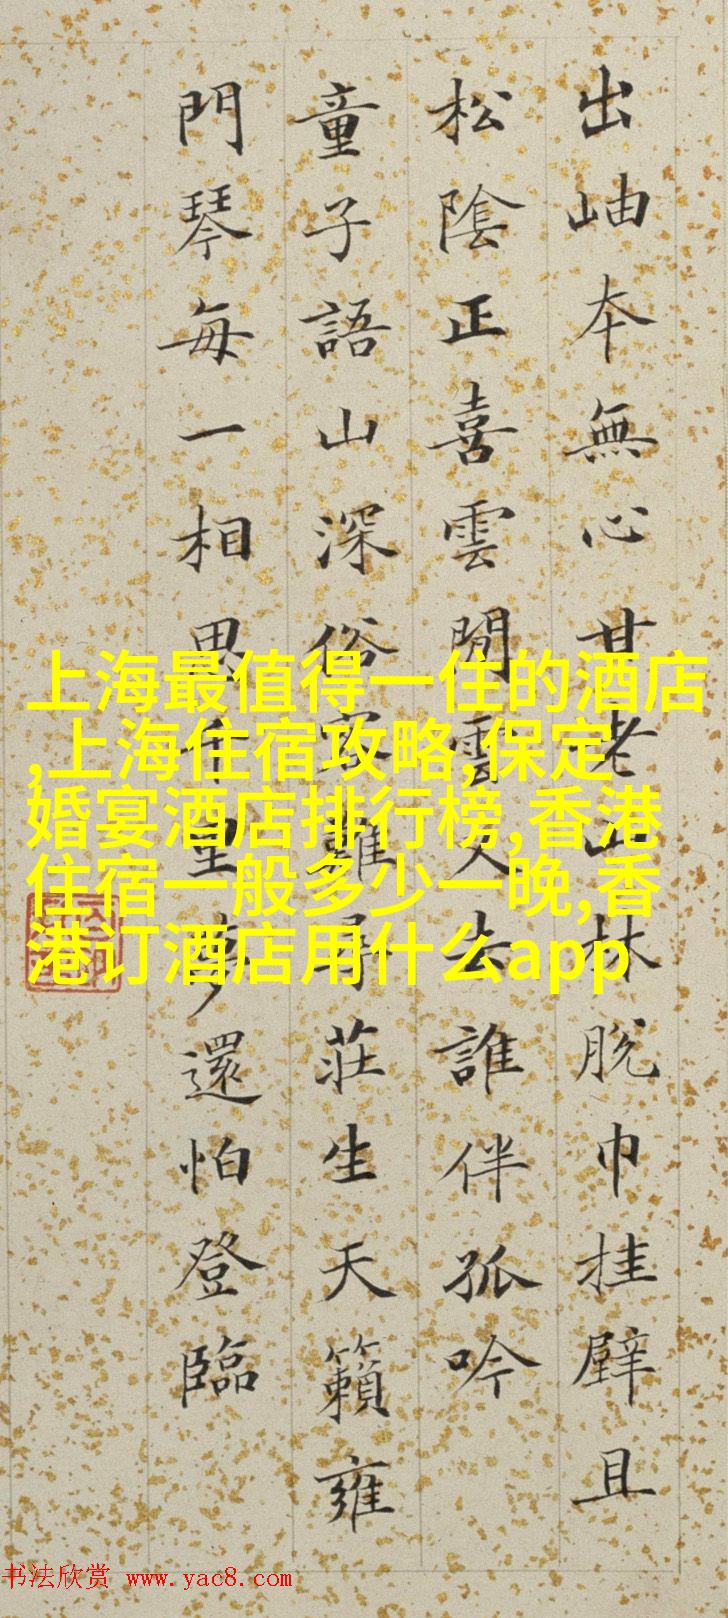 出岫本無心甘老山林脫巾挂壁且
松陰正喜雲閒雲又去誰伴孤吟
童子語山深俗客難尋莊生天籟雍
門琴每一相思千里夢還怕登臨
上海最值得一住的酒店
,上海住宿攻略,保定
婚宴酒店排行榜,香港
住宿一般多少一晚,香
港订酒店用什么app
书法欣赏 www.yac8.com